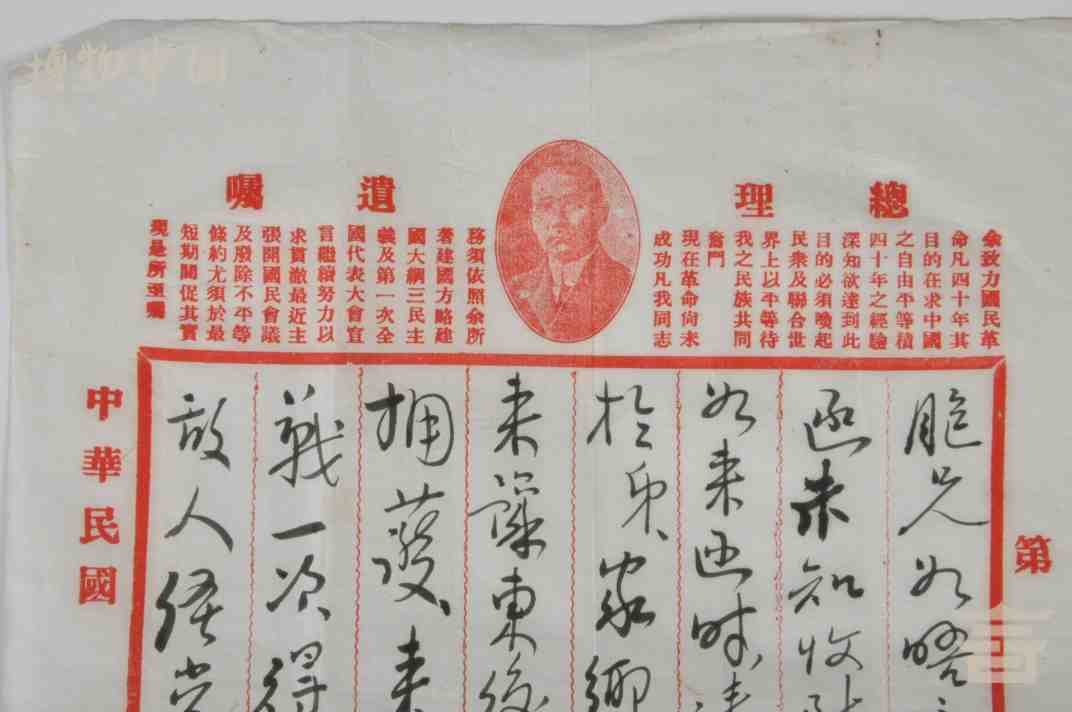 博物中国
總理遺囑
余致力國民革
命凡四十年其
目的在求中國
之自由平等積
四十年之經驗
深知欲達到此
目的必須喚起
民衆及聯合世
界上以平等待
我之民族共同
奮鬥
現在革命尙未
成功凡我同志
務須依照余所
著建國方略建
國大綱三民主
義及第一次全
國代表大會宣
言繼續努力以
求貫澈最近主
張開國民會議
及廢除不平等
條約尤須於最
短期間促其實
現是所至囑
第
兄如晤
函未知收
如来函时
於家鄉
来東後
来
戰一次得
敌人
中華民國